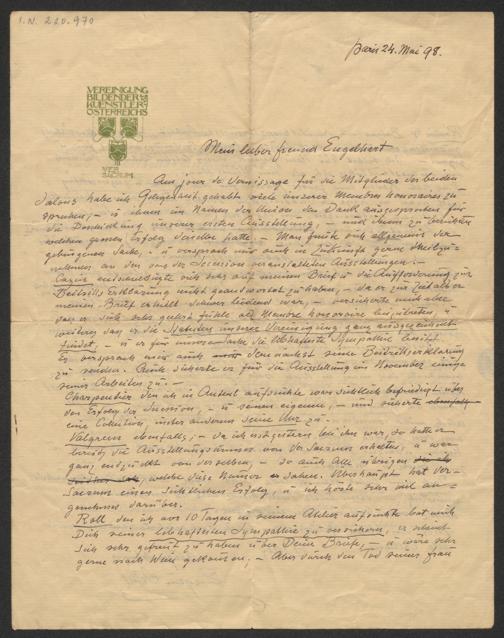 I.N. 220.970
Paris 24. Mai 98.
VEREINIGUNG
BILDENDER
KUENSTLER
ÖSTERREICHS
VER
SACRUM
Mein lieber freund Engelhart
Am jour de Vernissage für die Mitglieder der beiden
Salons habe ich Gelegenheit gehabt viele unserer Membres honoraires zu
sprechen, – u ihnen im Namen der den Dank ausgesprochen für
die Beschickung unserer ersten Ausstellung, – und ihnen zu berichten
welchen grossen Erfolg dieselbe hatte. – Man freute sich allgemein der
gelungenen Sache, – u versprach mir auch in Zukunft gerne theilzu-
nehmen an den von der Secession veranstalteten Ausstellungen. –
Cazin entschuldigte sich sehr auf meinen Brief u die Aufforderung zur
Beitritts Erklärung nicht geantwortet zu haben, – da er zur Zeit als er
meinen Brief erhielt schwer leidend war, – versicherte mich aber
dass er sich sehr geehrt fühle als Membre honoraire einzutreten, u
weiters dass er die Statuten unserer Vereinigung ganz ausgezeichnet
findet, – u er für unsere Sache die lebhafteste Sympathie besitzt
Er versprach mir auch demnächst seine Beitrittserklärung
zu senden. Auch sicherte er für die Ausstellung im November einige
seiner Arbeiten zu. –
Charpentier den ich in Auteuil aufsuchte war sichtlich befriedigt über
den Erfolg der Secession, – u seinen eigenen, – und sicherte ebenfalls
eine Collection, unter anderem seine Uhr zu. –
Valgren ebenfalls, – da ich gestern bei ihm war, so hatte er
bereits die Ausstellungsnummer von Ver Sacrum erhalten, u war
ganz entzückt von derselben, – so auch alle übrigen
welche diese Numer sahen. Überhaupt hat Ver-
Sacrum einen Erfolg, u ich höre sehr viel an-
genehmes darüber.
Roll den ich vor 10 Tagen in seinem Atelier aufsuchte bat mich
Dich seiner lebhaftesten Sympathie zu versichern, er scheint
sich sehr gefreut zu haben über Deine Briefe, – u wäre sehr
gerne nach Wien gekommen, – Aber durch den Tod seiner frau